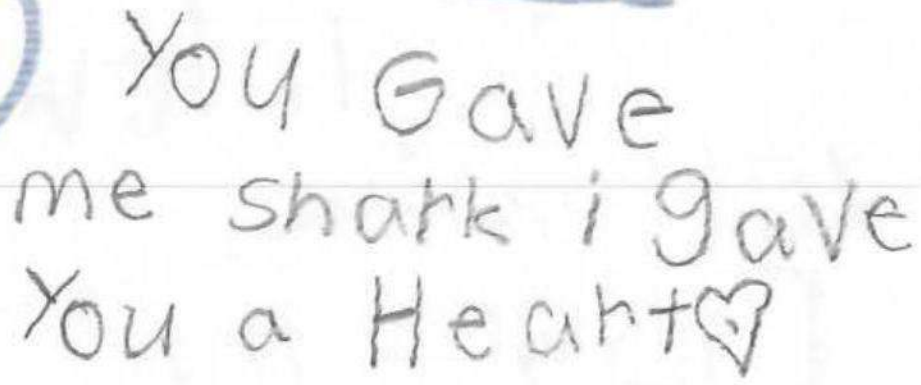 You Gave
me shark i gave
You a Heart♡